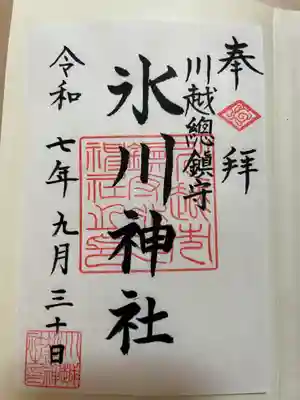 奉拝
川越總鎮守
氷川神社
令和七年九月三十日